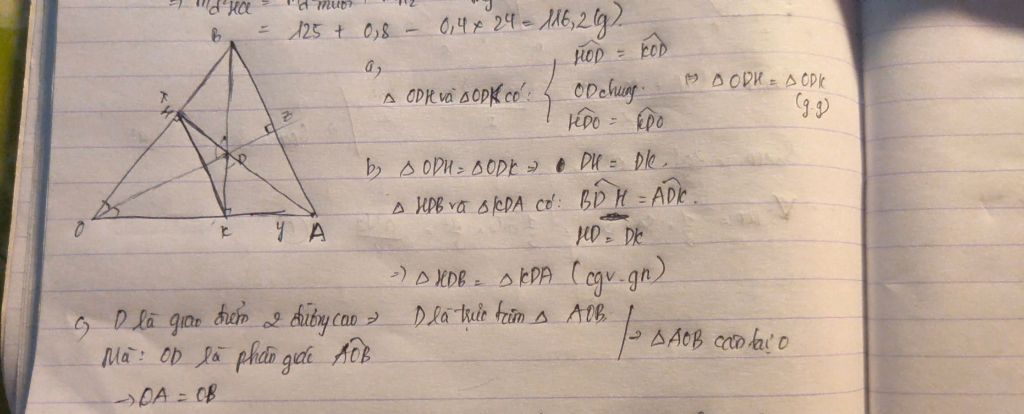 = 125 + 0,8 - 0,4 × 24 = 116,2 (g).
B
x
H
z
D
O
K
y
A
a,
Δ ODH và ΔODK có:
HÔD = KÔD
OD chung.
HD̂O = KD̂O
=> Δ ODH = Δ ODK
(g.g)
b, Δ ODH = ΔODK => DH = DK.
Δ HDB và ΔKDA có: BD̂H = AD̂K.
HD = DK
=> Δ HDB = Δ KDA (cgv-gn)
c, D là giao điểm 2 đường cao => D là trực tâm Δ AOB.
Mà: OD là phân giác AÔB
=> Δ AOB cân tại O
-> OA = OB